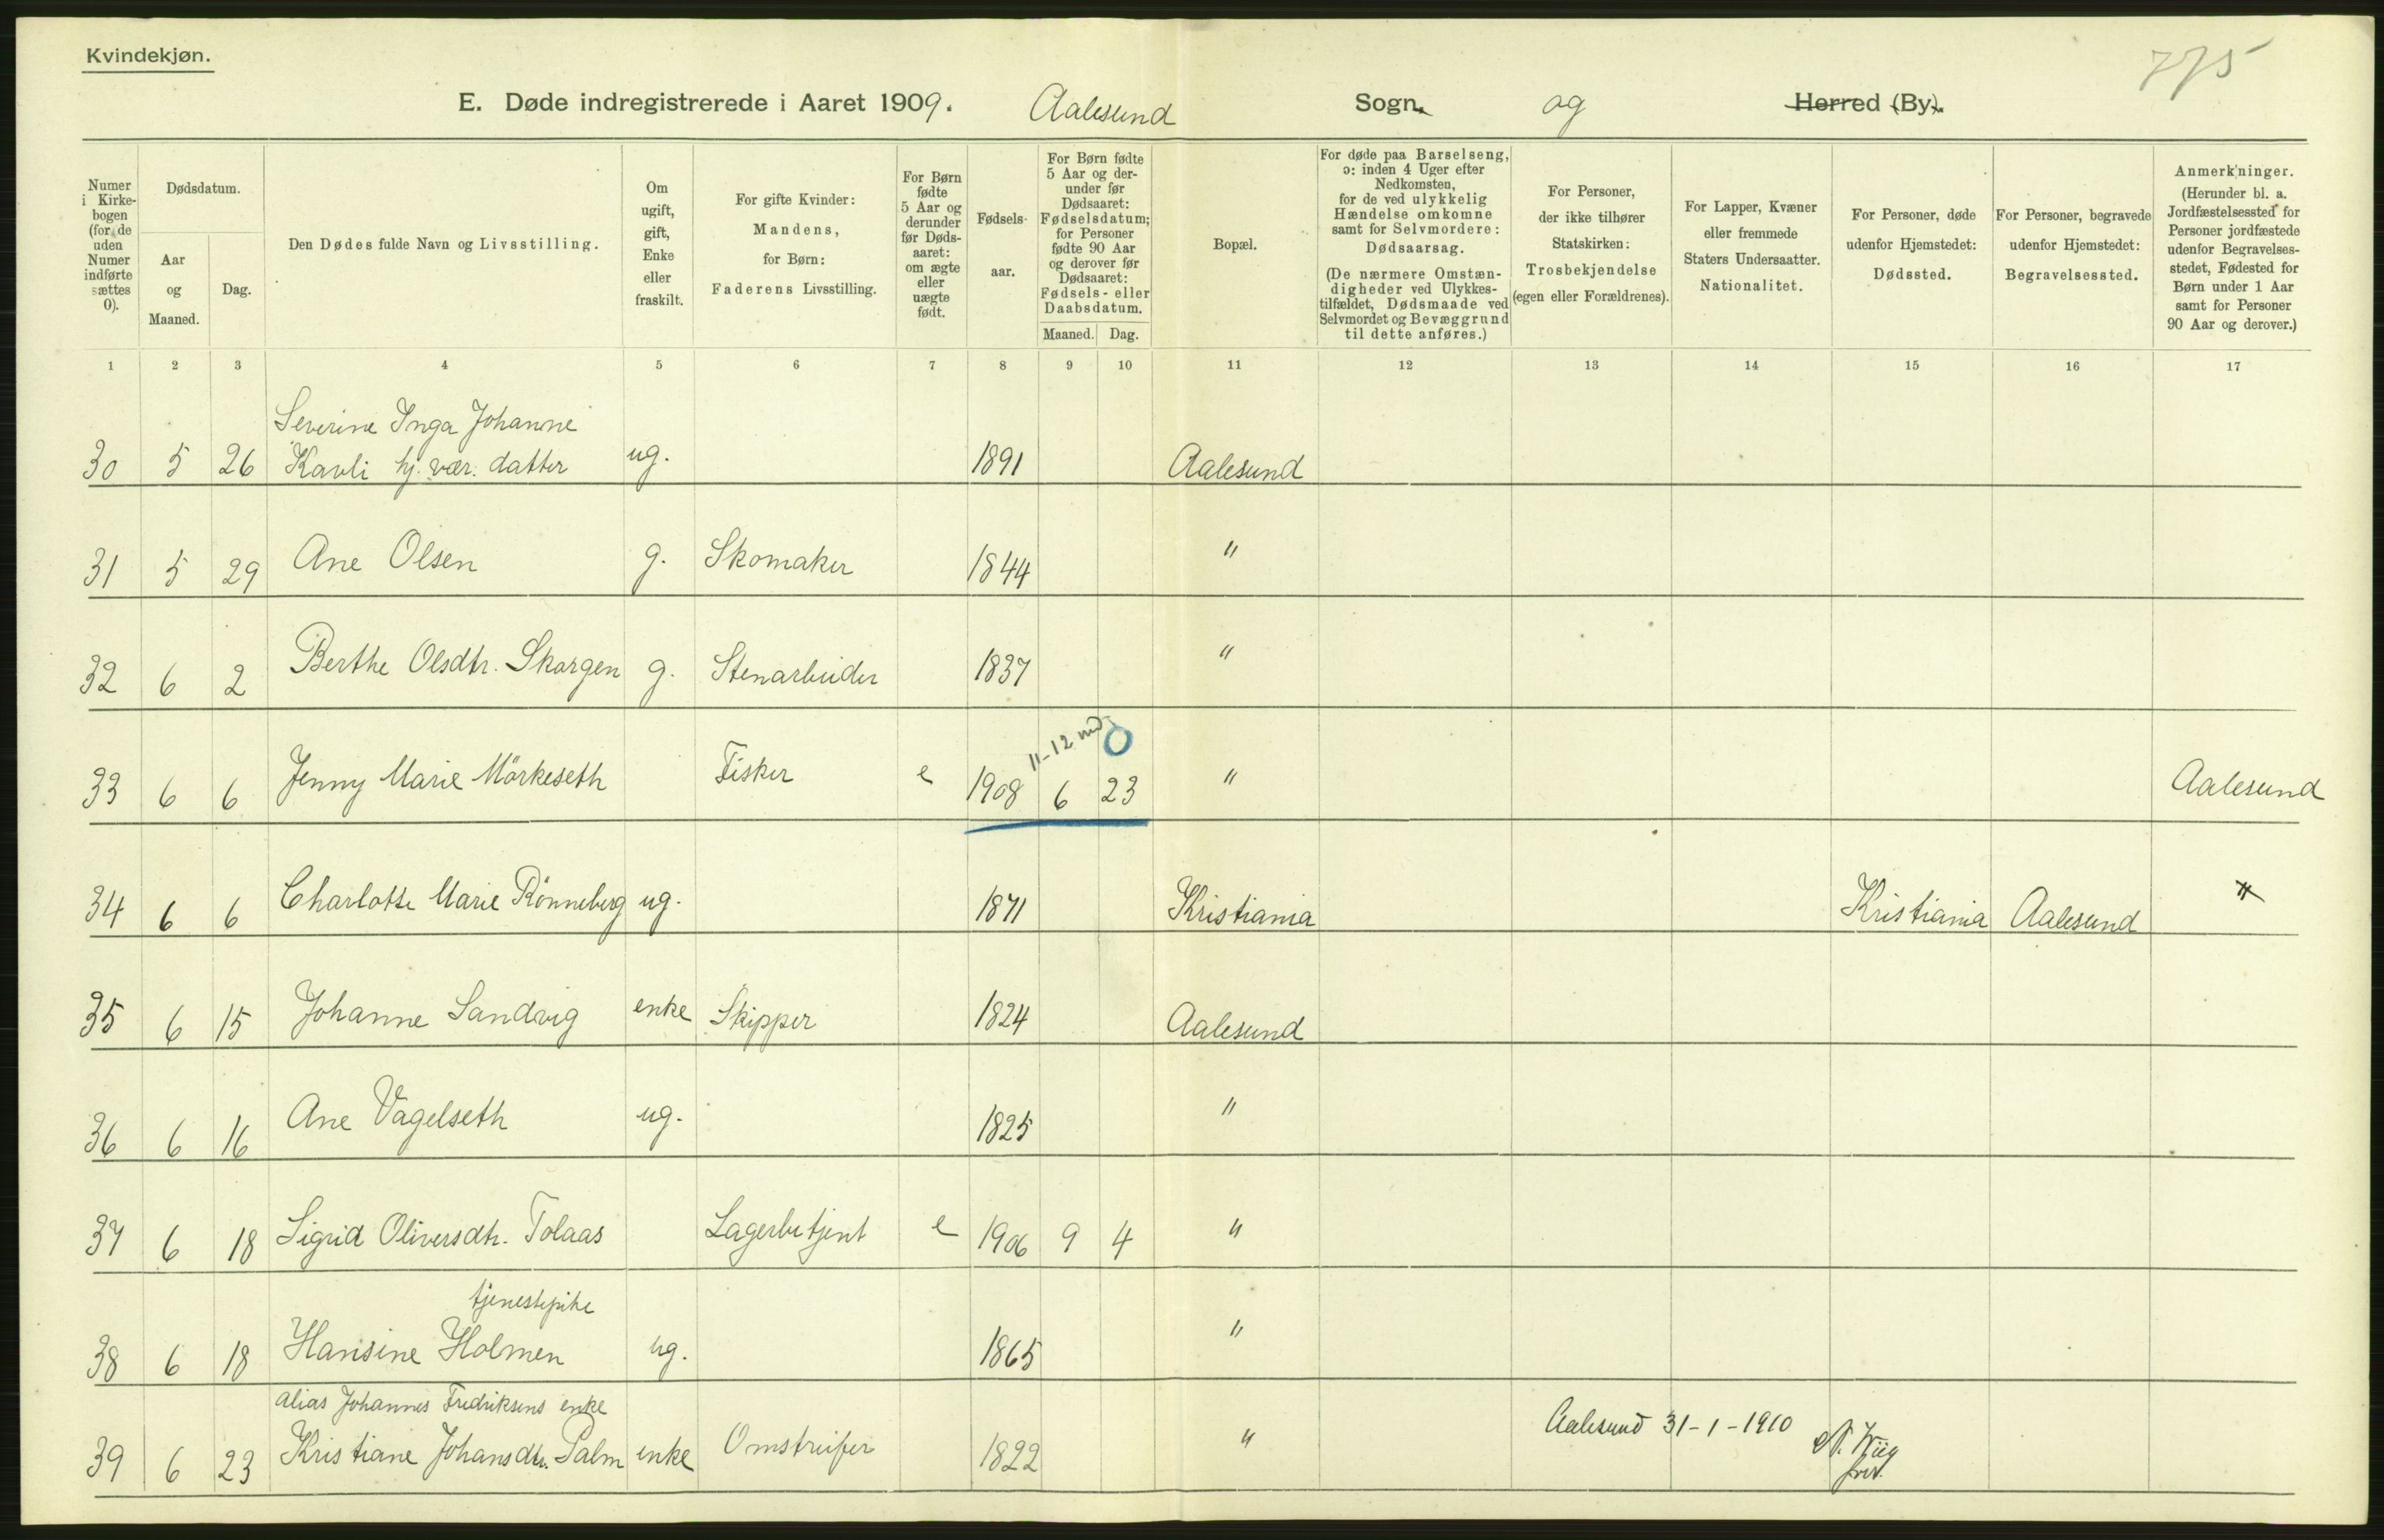 Kvindekjøn.
775
E. Døde indregistrerede i Aaret 1909. Aalesund Sogn. og Herred (By).
Numer i Kirke-bogen (for de uden Numer indførte sættes 0).
Dødsdatum.
Aar og Maaned.
Dag.
Den Dødes fulde Navn og Livsstilling.
Om ugift, gift, Enke eller fraskilt.
For gifte Kvinder: Mandens, for Børn: Faderens Livsstilling.
For Børn fødte 5 Aar og derunder før Døds-aaret: om ægte eller uægte født.
Fødsels-aar.
For Børn fødte 5 Aar og der-under før Dødsaaret: Fødselsdatum; for Personer fødte 90 Aar og derover før Dødsaaret: Fødsels- eller Daabsdatum.
Maaned. Dag.
Bopæl.
For døde paa Barselseng, ɔ: inden 4 Uger efter Nedkomsten, for de ved ulykkelig Hændelse omkomne samt for Selvmordere: Dødsaarsag. (De nærmere Omstæn-digheder ved Ulykkes-tilfældet, Dødsmaade ved Selvmordet og Bevæggrund til dette anføres.)
For Personer, der ikke tilhører Statskirken: Trosbekjendelse (egen eller Forældrenes).
For Lapper, Kvæner eller fremmede Staters Undersaatter. Nationalitet.
For Personer, døde udenfor Hjemstedet: Dødssted.
For Personer, begravede udenfor Hjemstedet: Begravelsessted.
Anmerkninger. (Herunder bl. a. Jordfæstelsessted for Personer jordfæstede udenfor Begravelses-stedet, Fødested for Børn under 1 Aar samt for Personer 90 Aar og derover.)
1 2 3 4 5 6 7 8 9 10 11 12 13 14 15 16 17
Severine Inga Johanne
30 5 26 Kavli hj. vær. datter ug. 1891 Aalesund
31 5 29 Ane Olsen g. Skomaker 1844 "
32 6 2 Berthe Olsdtr. Skorgen g. Stenarbeider 1837 "
11-12 md 0
33 6 6 Jenny Marie Mörkeseth Fisker e 1908 6 23 " Aalesund
34 6 6 Charlotte Marie Rönneberg ug. 1871 Kristiania Kristiania Aalesund "
35 6 15 Johanne Sandvig enke Skipper 1824 Aalesund
36 6 16 Ane Vagelseth ug. 1825 "
37 6 18 Sigrid Oliversdtr. Tolaas Lagerbetjent e 1906 9 4 "
tjenestepike
38 6 18 Hansine Holmen ug. 1865 "
alias Johannes Fredriksens enke
39 6 23 Kristiane Johansdtr. Palm enke Omstreifer 1822 " Aalesund 31-1-1910